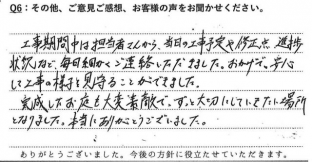 Q6：その他、ご意見ご感想、お客様の声をお聞かせください。
工事期間中は担当者さんから、当日の工事予定や修正点、進捗
状況など、毎日細かくご連絡いただきました。おかげで、安心
して工事の様子を見守ることができました。
完成したお庭も大変素敵で、ずっと大切にしていきたい場所
となりました。本当にありがとうございました。
ありがとうございました。今後の方針に役立たせていただきます。